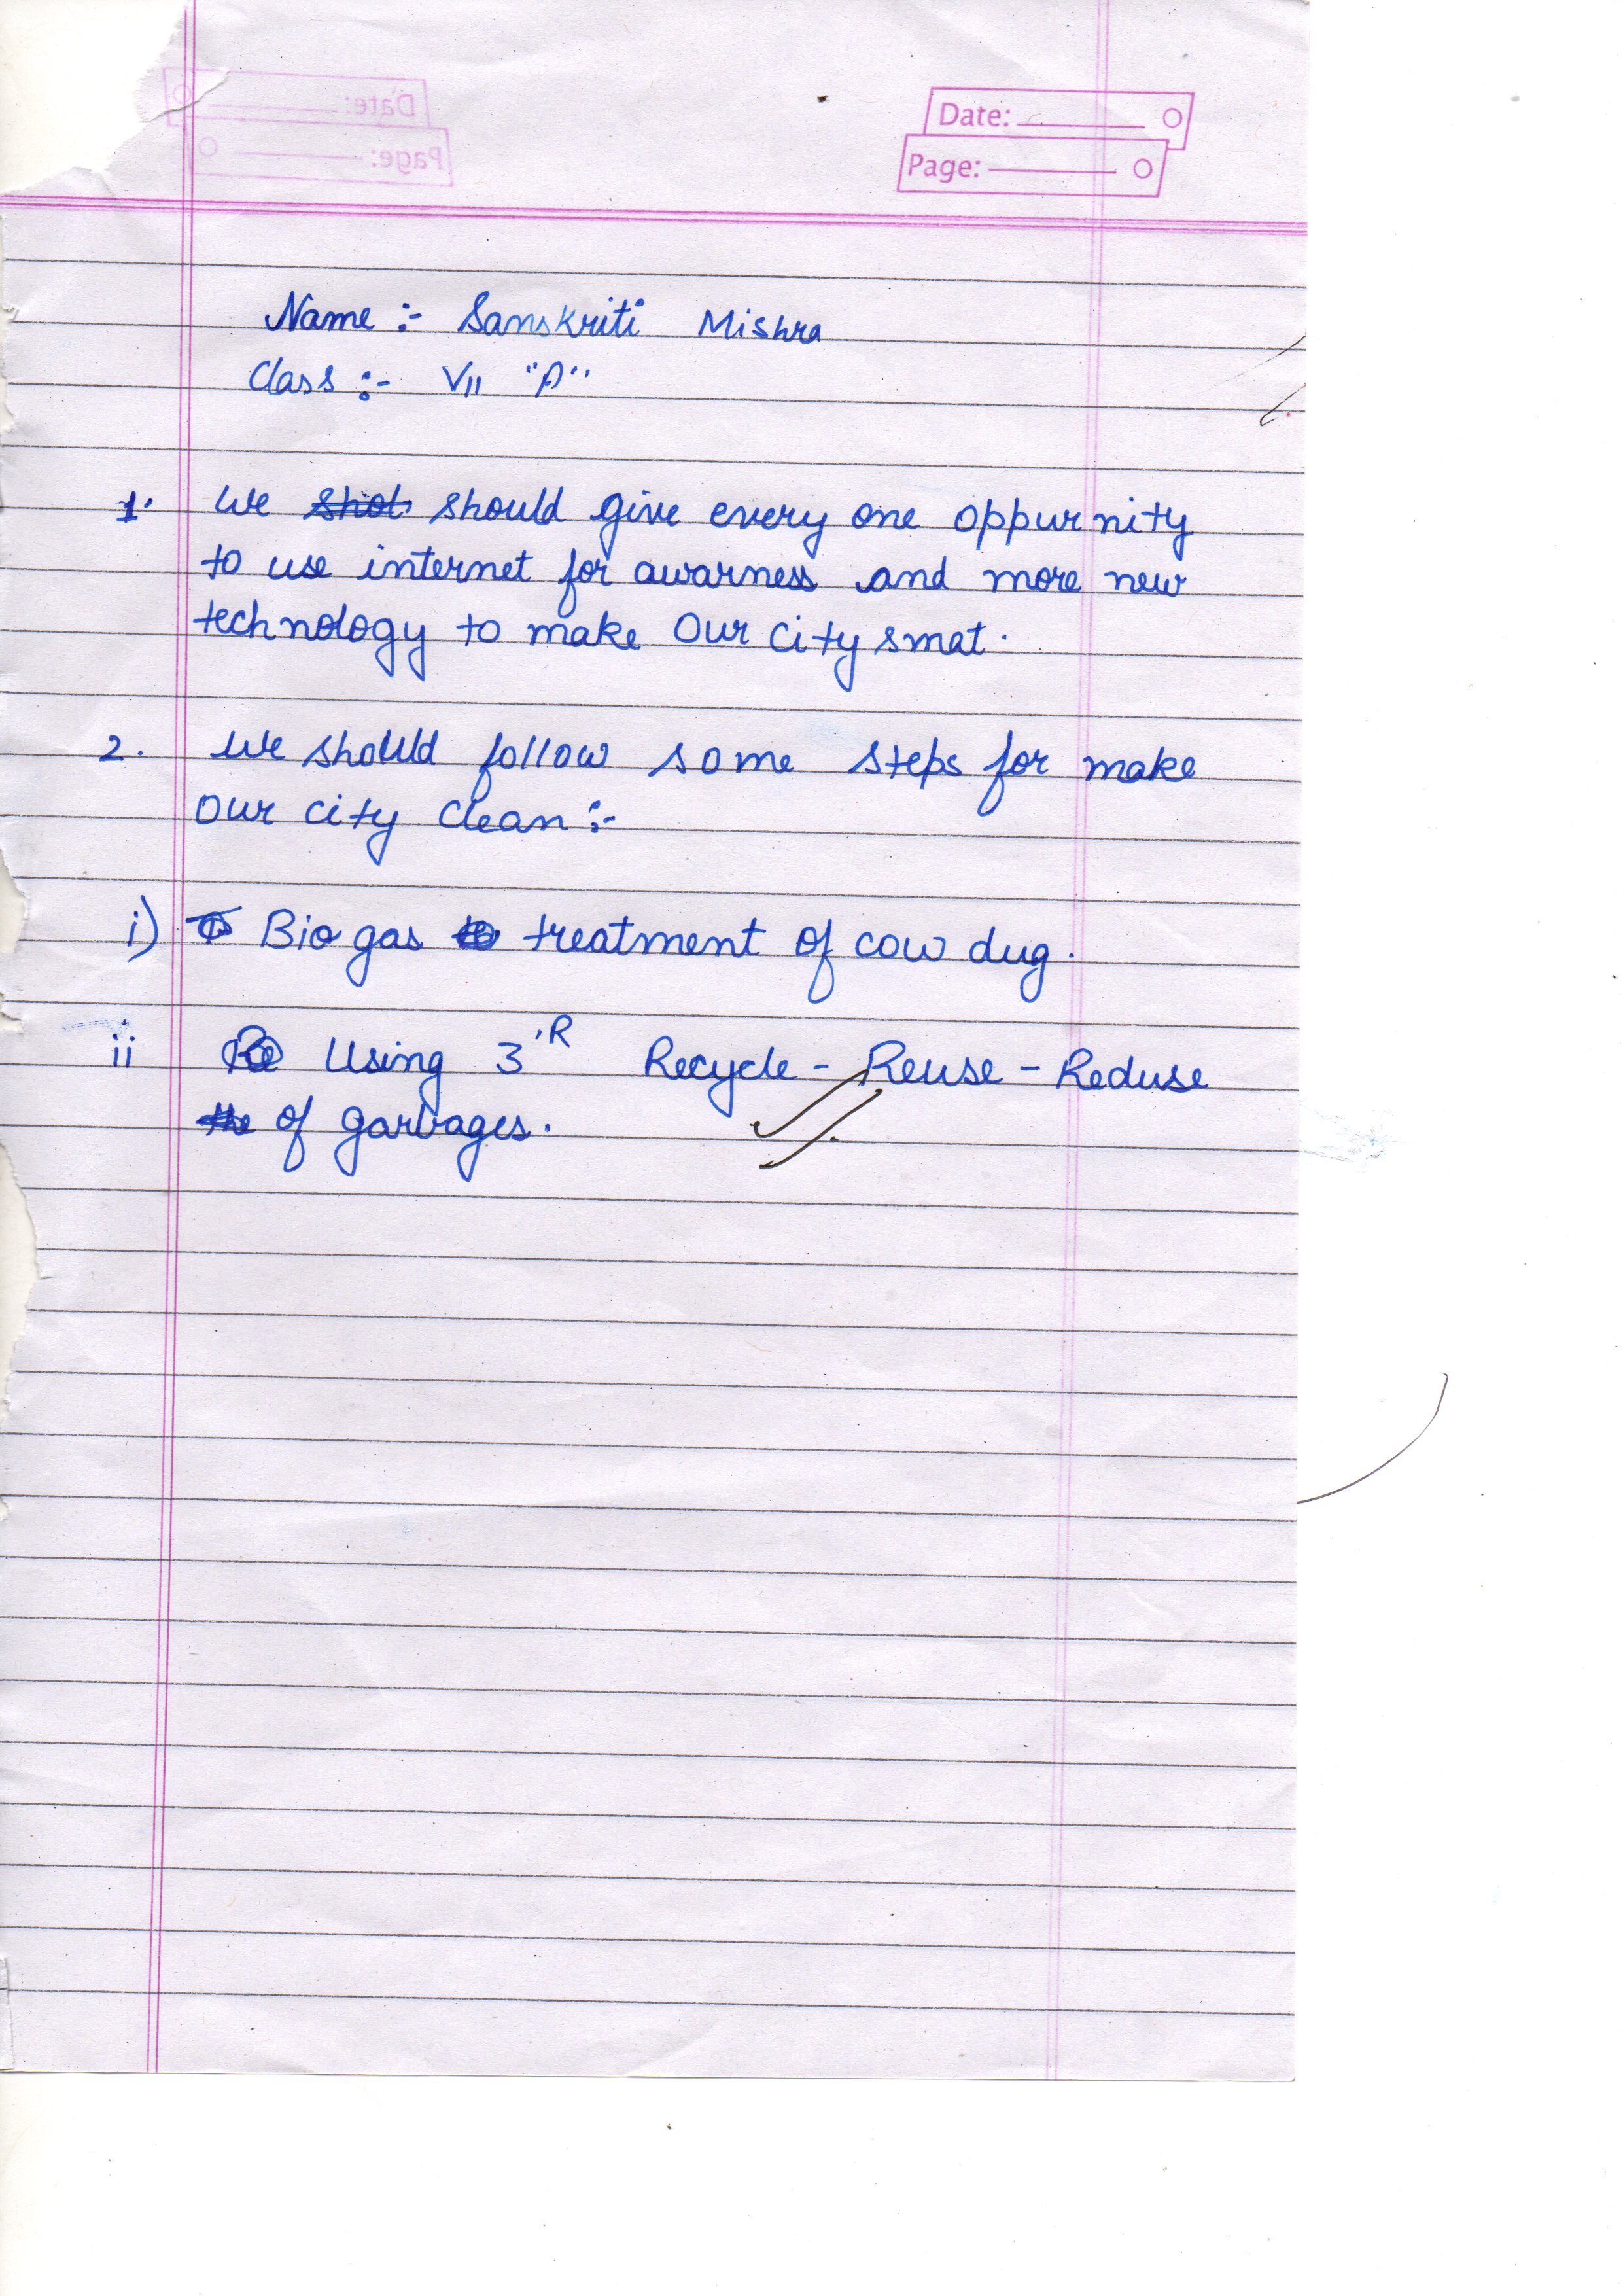 Date:
Page:
Name :- Sanskriti Mishra
Class :- VII "A"
1. We should give every one oppurnity
to use internet for awarness and more new
technology to make Our city smat.
2. We should follow some steps for make
our city clean :-
i) Bio gas treatment of cow dug.
ii Using 3'R Recycle - Reuse - Reduse
of garbages.